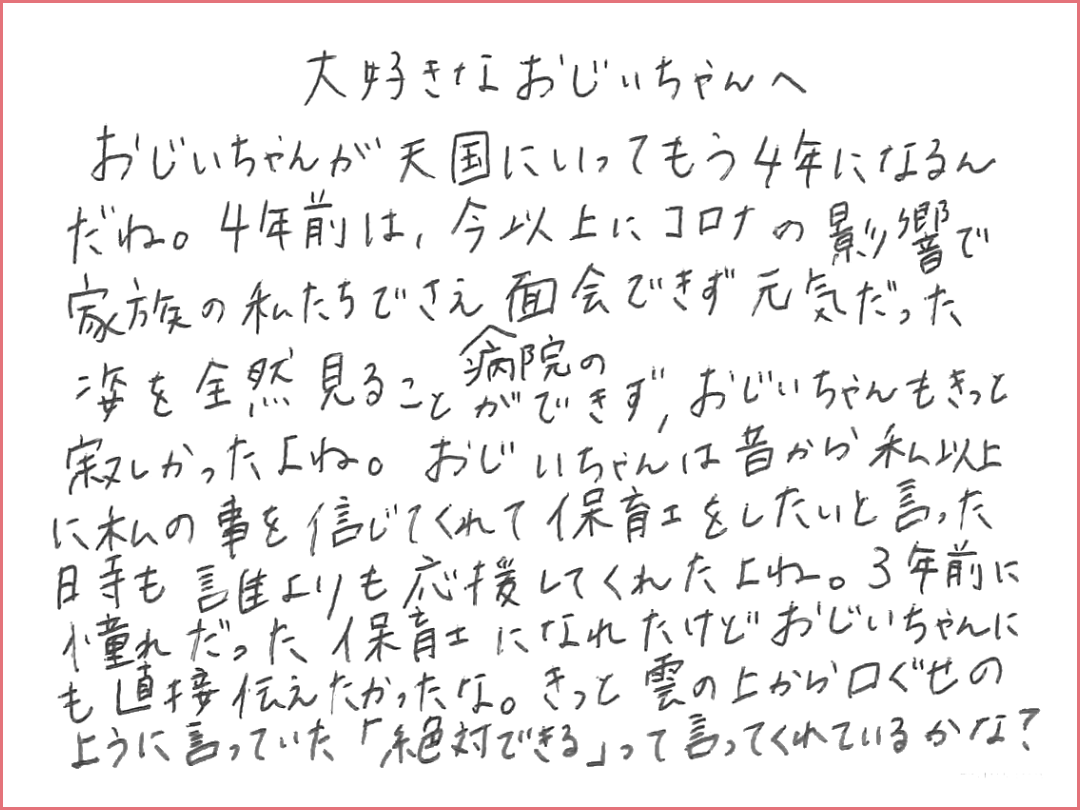 大好きなおじぃちゃんへ
おじぃちゃんが天国にいってもう4年になるん
だね。4年前は、今以上にコロナの影響で
家族の私たちでさえ面会できず元気だった
姿を全然見ること病院のができず、おじぃちゃんもきっと
寂しかったよね。おじぃちゃんは昔から私以上
に私の事を信じてくれて保育士をしたいと言った
時も誰よりも応援してくれたよね。3年前に
憧れだった保育士になれたけどおじぃちゃんに
も直接伝えたかったな。きっと雲の上から口ぐせの
ように言っていた「絶対できる」って言ってくれているかな?